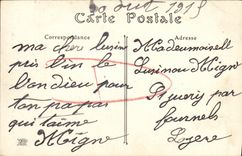 30 out 1915
Carte Postale
Correspondance
Adresse
ma cher lusino
pris l'in le
bon dieu pour
ton papas
qui t'aime
Migno
Mademoiselle
Lusinou Migno
St juery par
fournels
Lozere